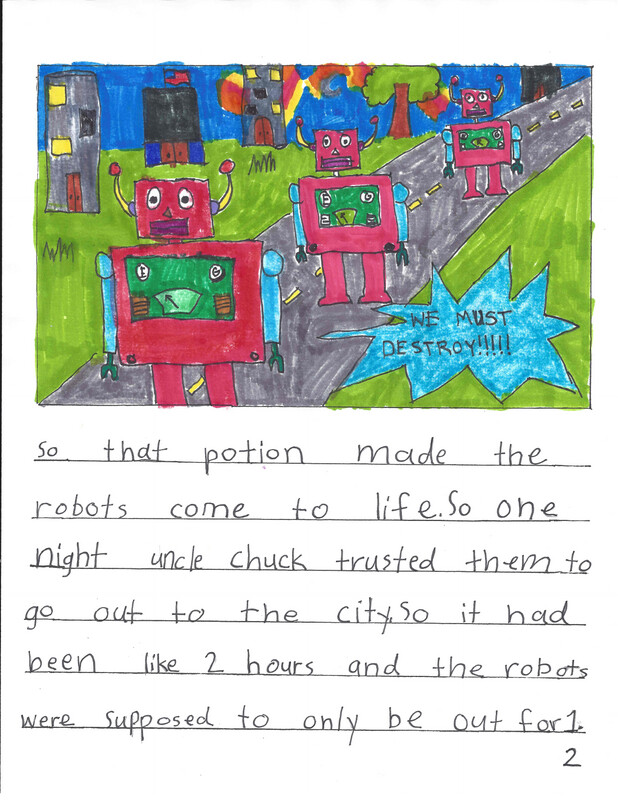 WE MUST
DESTROY!!!!!
E G
E G
so that potion made the
robots come to life.So one
night uncle chuck trusted them to
go out to the city.So it had
been like 2 hours and the robots
were supposed to only be out for 1.
2